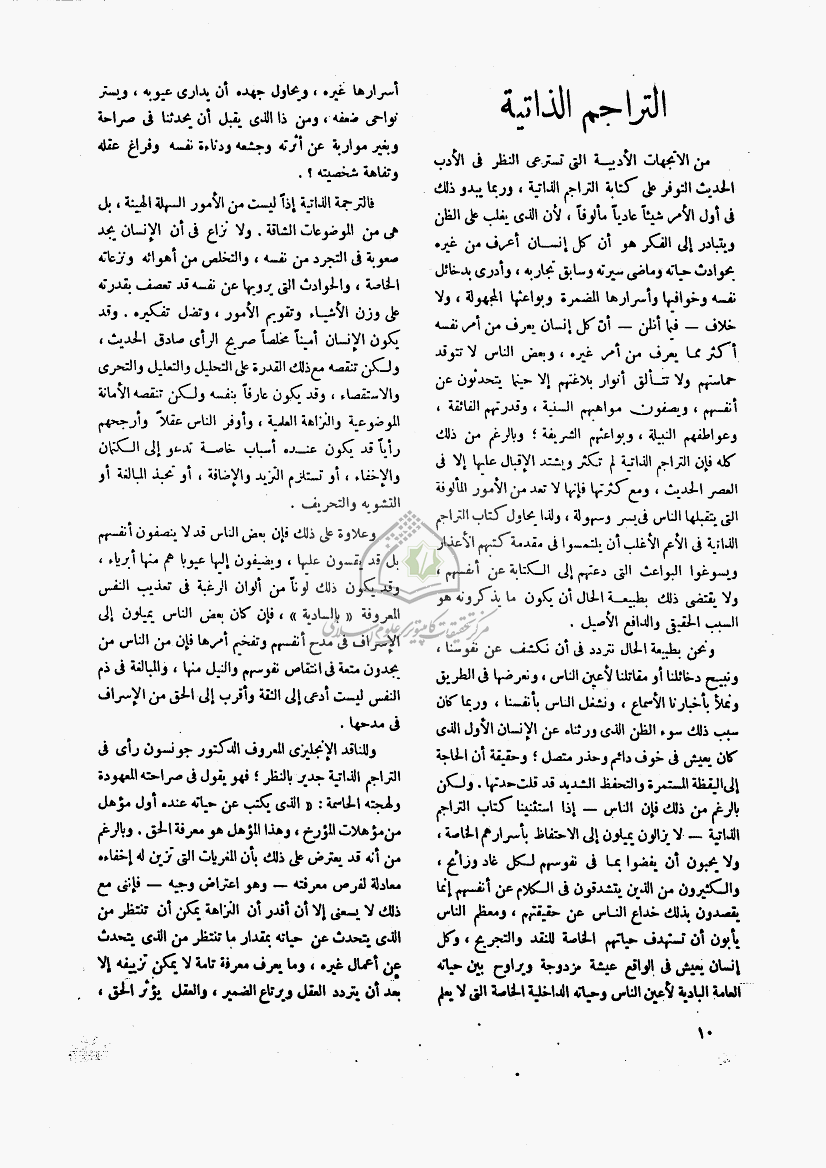 التراجم الذاتية
من الاتجهات الأدبيـة التى تسترعى النظر فى الأدب
الحديث التوفر على كتابة التراجم الذاتية ، وربما يبدو ذلك
فى أول الأمر شيئاً عادياً مألوفاً ، لأن الذى يغلب على الظن
ويتبادر إلى الفكر هو أن كل إنسان أعرف من غيره
بحوادث حياته وماضى سيرته وسابق تجاربه ، وأدرى بدخائل
نفسه وخوافيها وأسرارها المضمرة وبواعثها المجهولة ، ولا
خلاف — فيما أظن — أن كل إنسان يعرف من أمر نفسه
أكثر مما يعرف من أمر غيره ، وبعض الناس لا تتوقد
حماستهم ولا تتألق أنوار بلاغتهم إلا حينما يتحدثون عن
أنفسهم ، ويصفون مواهبهم السنية ، وقدرتهم الفائقة ،
وعواطفهم النبيلة ، وبواعثهم الشريفة ؛ وبالرغم من ذلك
كله فإن التراجم الذاتية لم تكثر ويشتد الإقبال عليها إلا فى
العصر الحديث ، ومع كثرتها فإنها لا تعد من الأمور المألوفة
التى يتقبلها الناس فى يسر وسهولة ، ولذا يحاول كتاب التراجم
الذاتية فى الأعم الأغلب أن يلتمسوا فى مقدمة كتبهم الأعذار
ويسوغوا البواعث التى دعتهم إلى الكتابة عن أنفسهم ،
ولا يقتضى ذلك بطبيعة الحال أن يكون ما يذكرونه هو
السبب الحقيقى والدافع الأصيل .
ونحن بطبيعة الحال نتردد فى أن نكشف عن نفوسنا ،
ونبيح دخائلنا أو مقاتلنا لأعين الناس ، ونعرضها فى الطريق
ونملأ بأخبارنا الأسماع ، ونشغل الناس بأنفسنا ، وربما كان
سبب ذلك سوء الظن الذى ورثناه عن الإنسان الأول الذى
كان يعيش فى خوف دائم وحذر متصل ؛ وحقيقة أن الحاجة
إلى اليقظة المستمرة والتحفظ الشديد قد قلت حدتها . ولكن
بالرغم من ذلك فإن الناس — إذا استثنينا كتاب التراجم
الذاتية — لا يزالون يميلون إلى الاحتفاظ بأسرارهم الخاصة ،
ولا يحبون أن يفضوا بمـا فى نفوسهم لكل غاد ورائح ،
والكثيرون من الذين يتشدقون فى الكلام عن أنفسهم إنما
يقصدون بذلك خداع الناس عن حقيقتهم ، ومعظم الناس
يأبون أن تستهدف حياتهم الخاصة للنقد والتجريح ، وكل
إنسان يعيش فى الواقع عيشة مزدوجة ويراوح بين حياته
العامة البادية لأعين الناس وحياته الداخلية الخاصة التى لا يعلم
أسرارها غيره ، ويحاول جهده أن يدارى عيوبه ، ويستر
نواحى ضعفه ، ومن ذا الذى يقبل أن يحدثنا فى صراحة
وبغير مواربة عن أثرته وجشعه ودناءة نفسه وفراغ عقله
وتفاهة شخصيته ؟ .
فالترجمة الذاتية إذاً ليست من الأمور السهلة الهينة ، بل
هى من الموضوعات الشاقة . ولا نزاع فى أن الإنسان يجد
صعوبة فى التجرد من نفسه ، والتخلص من أهوائه ونزعاته
الخاصة ، والحوادث التى يرويها عن نفسه قد تعصف بقدرته
على وزن الأشياء وتقويم الأمور ، وتضل تفكيره . وقد
يكون الإنسان أميناً مخلصاً صريح الرأى صادق الحديث ،
ولكن تنقصه مع ذلك القدرة على التحليل والتعليل والتحرى
والاستقصاء ، وقد يكون عارفاً بنفسه ولكن تنقصه الأمانة
الموضوعية والنزاهة العلمية ، وأوفر الناس عقلاً وأرجحهم
رأياً قد يكون عنـده أسباب خاصة تدعو إلى الكتمان
والإخفاء ، أو تستلزم التزيد والإضافة ، أو تحبذ المبالغة أو
التشويه والتحريف .
وعلاوة على ذلك فإن بعض الناس قد لا ينصفون أنفسهم
بل قد يقسون عليها ، ويضيفون إليها عيوبا هم منها أبرياء ،
وقد يكون ذلك لوناً من ألوان الرغبة فى تعذيب النفس
المعروفة « بالسادية » ، فإن كان بعض الناس يميلون إلى
الإسراف فى مدح أنفسهم وتفخيم أمرها فإن من الناس من
يجدون متعة فى انتقاص نفوسهم والنيل منها ، والمبالغة فى ذم
النفس ليست أدعى إلى الثقة وأقرب إلى الحق من الإسراف
فى مدحها .
وللناقد الإنجليزى المعروف الدكتور جونسون رأى فى
التراجم الذاتية جدير بالنظر ؛ فهو يقول فى صراحته المعهودة
ولهجته الحاسمة : « الذى يكتب عن حياته عنده أول مؤهل
من مؤهلات المؤرخ ، وهذا المؤهل هو معرفة الحق . وبالرغم
من أنه قد يعترض على ذلك بأن المغريات التى تزين له إخفاءه
معادلة لفرص معرفته — وهو اعتراض وجيه — فإننى مع
ذلك لا يسعنى إلا أن أقدر أن النزاهة يمكن أن تنتظر من
الذى يتحدث عن حياته بمقدار ما تنتظر من الذى يتحدث
عن أعمال غيره ، وما يعرف معرفة تامة لا يمكن تزييفه إلا
بعد أن يتردد العقل ويرتاع الضمير ، والعقل يؤثر الحق ،
١٠
مركز تحقیقات کامپیوتری علوم اسلامی